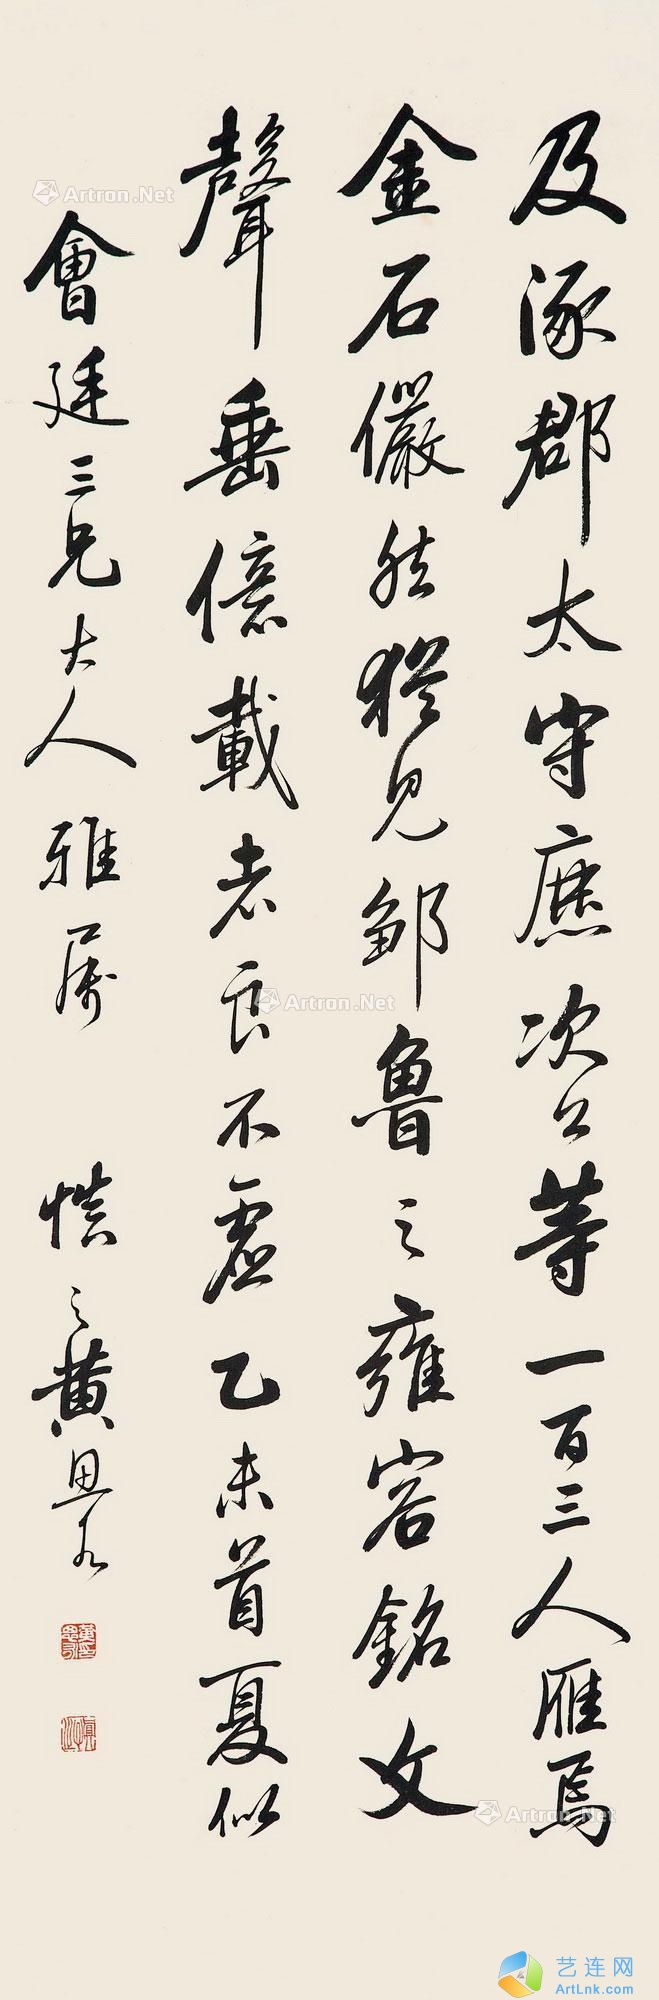 及涿郡太守庶次公等一百三人雁焉
金石儼然猶見鄒魯之雍容銘文
聲垂億載者良不虛乙未首夏似
會廷三兄大人雅屬
慎之黃思永
Artron.Net
Artron.Net
Artron.Net
艺连网
ArtLnk.com